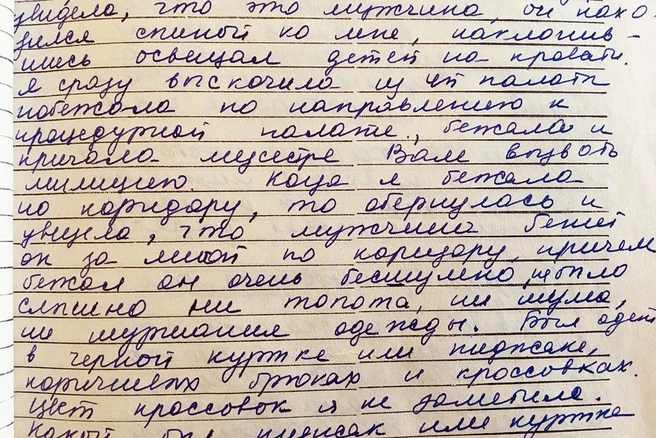 увидела, что это мужчина, он нахо-
дился спиной ко мне, наклонив-
шись освещал детей на кровати.
Я сразу выскочила из палаты
побежала по направлению к
процедурной палате, бежала и
кричала медсестре Вале вызвать
милицию. Когда я бежала
по коридору, то обернулась и
увидела, что мужчина бежит
он за мной по коридору, причем
бежал он очень бесшумно, не было
слышно ни топота, ни шума,
ни шуршания одежды. Был одет
в черной куртке или пиджаке,
коричневых брюках и кроссовках.
Цвет кроссовок я не заметила.
Какой был пиджак или куртка